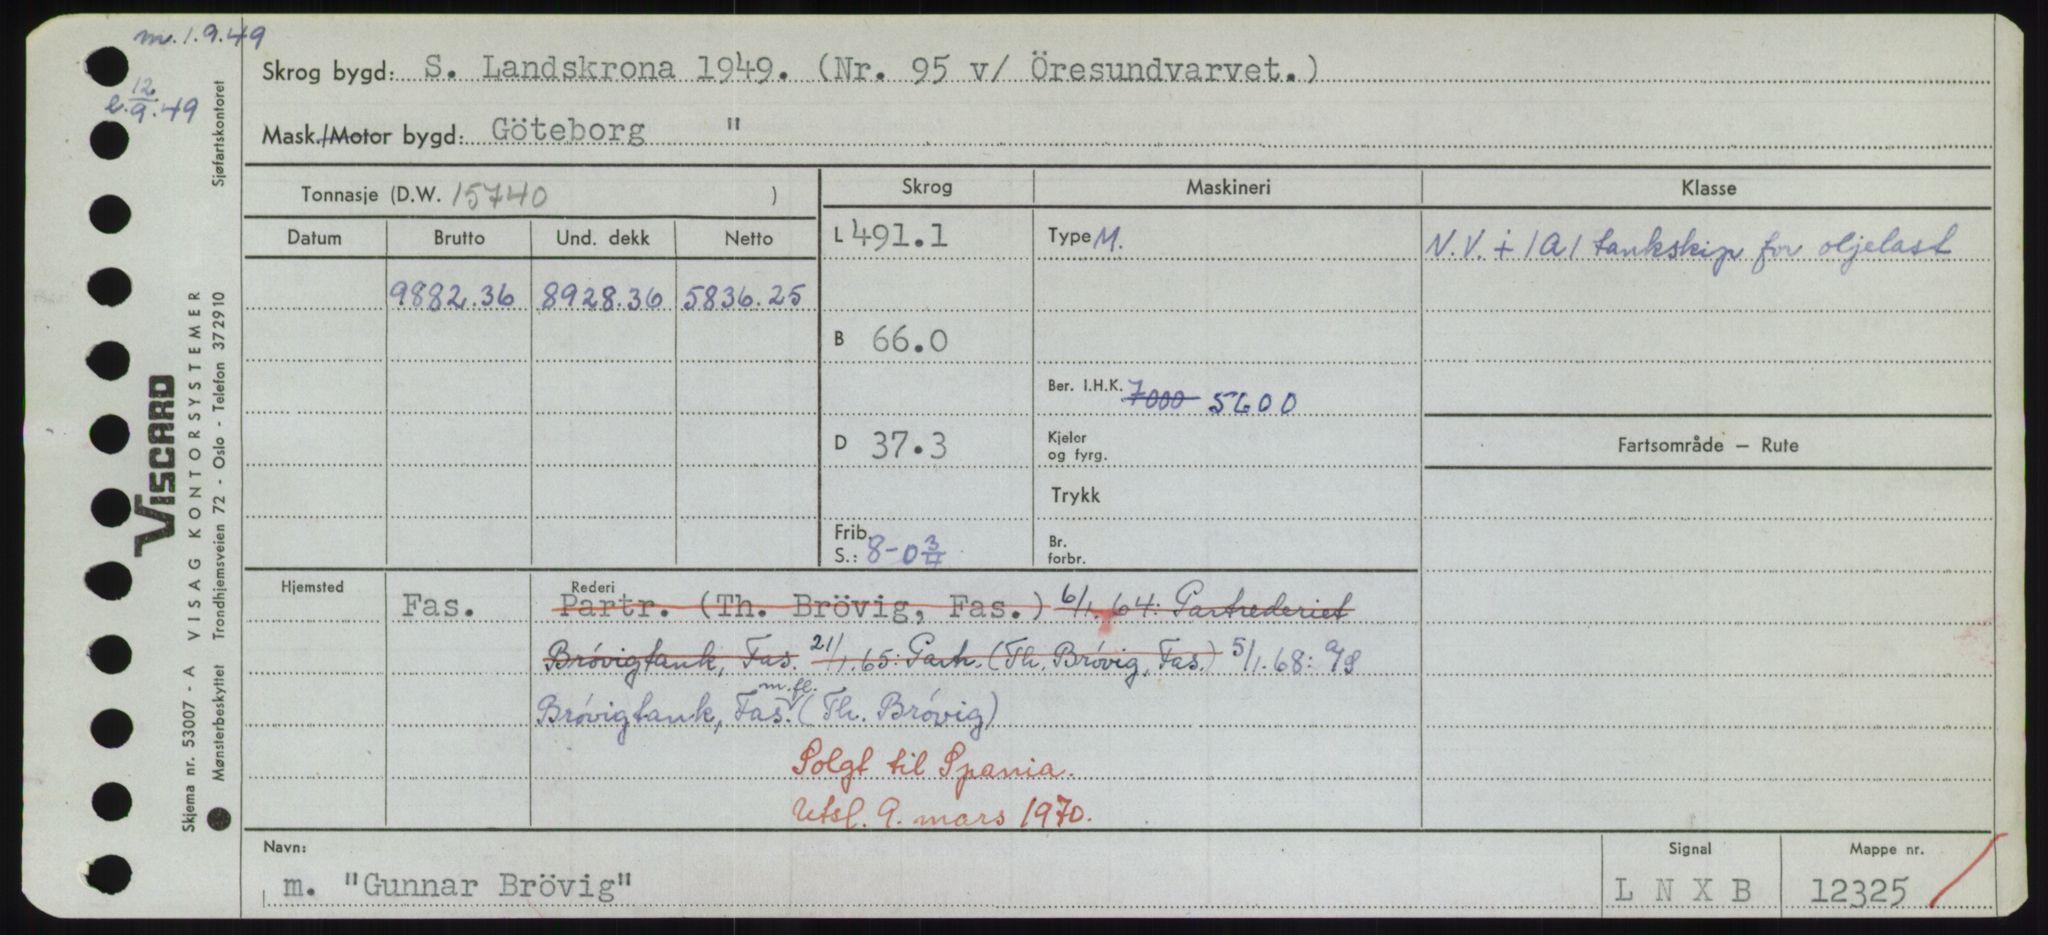 m. 1.9.49
e. 12/9.49
Skrog bygd: S. Landskrona 1949. (Nr. 95 v/ Öresundvarvet.)
Mask./Motor bygd: Göteborg "
Tonnasje (D.W. 15740 )
Skrog Maskineri Klasse
Datum Brutto Und. dekk Netto
L 491.1 Type M. N.V. + 1A1 tankskip for oljelast
9882.36 8928.36 5836.25
B 66.0
Ber. I.H.K. 7000 5600
D 37.3 Kjeler og fyrg. Fartsområde – Rute
Trykk
Frib. S.: 8-0 3/4 Br. forbr.
Hjemsted Rederi
Fas. Partr. (Th. Brövig, Fas.) 6/1.64: Partrederiet
Brövigtank, Fas. 21/1.65: Partr. (Th. Brövig, Fas.) 5/1.68: A/S
m.fl.
Brövigtank, Fas. (Th. Brövig)
Solgt til Spania.
Utsl. 9. mars 1970.
Navn: Signal Mappe nr.
m. "Gunnar Brövig" L N X B 12325
Sjøfartskontoret
VISCARD
VISAG KONTORSYSTEMER
Trondhjemsveien 72 - Oslo - Telefon 372910
Skjema nr. 53007 - A
Mønsterbeskyttet